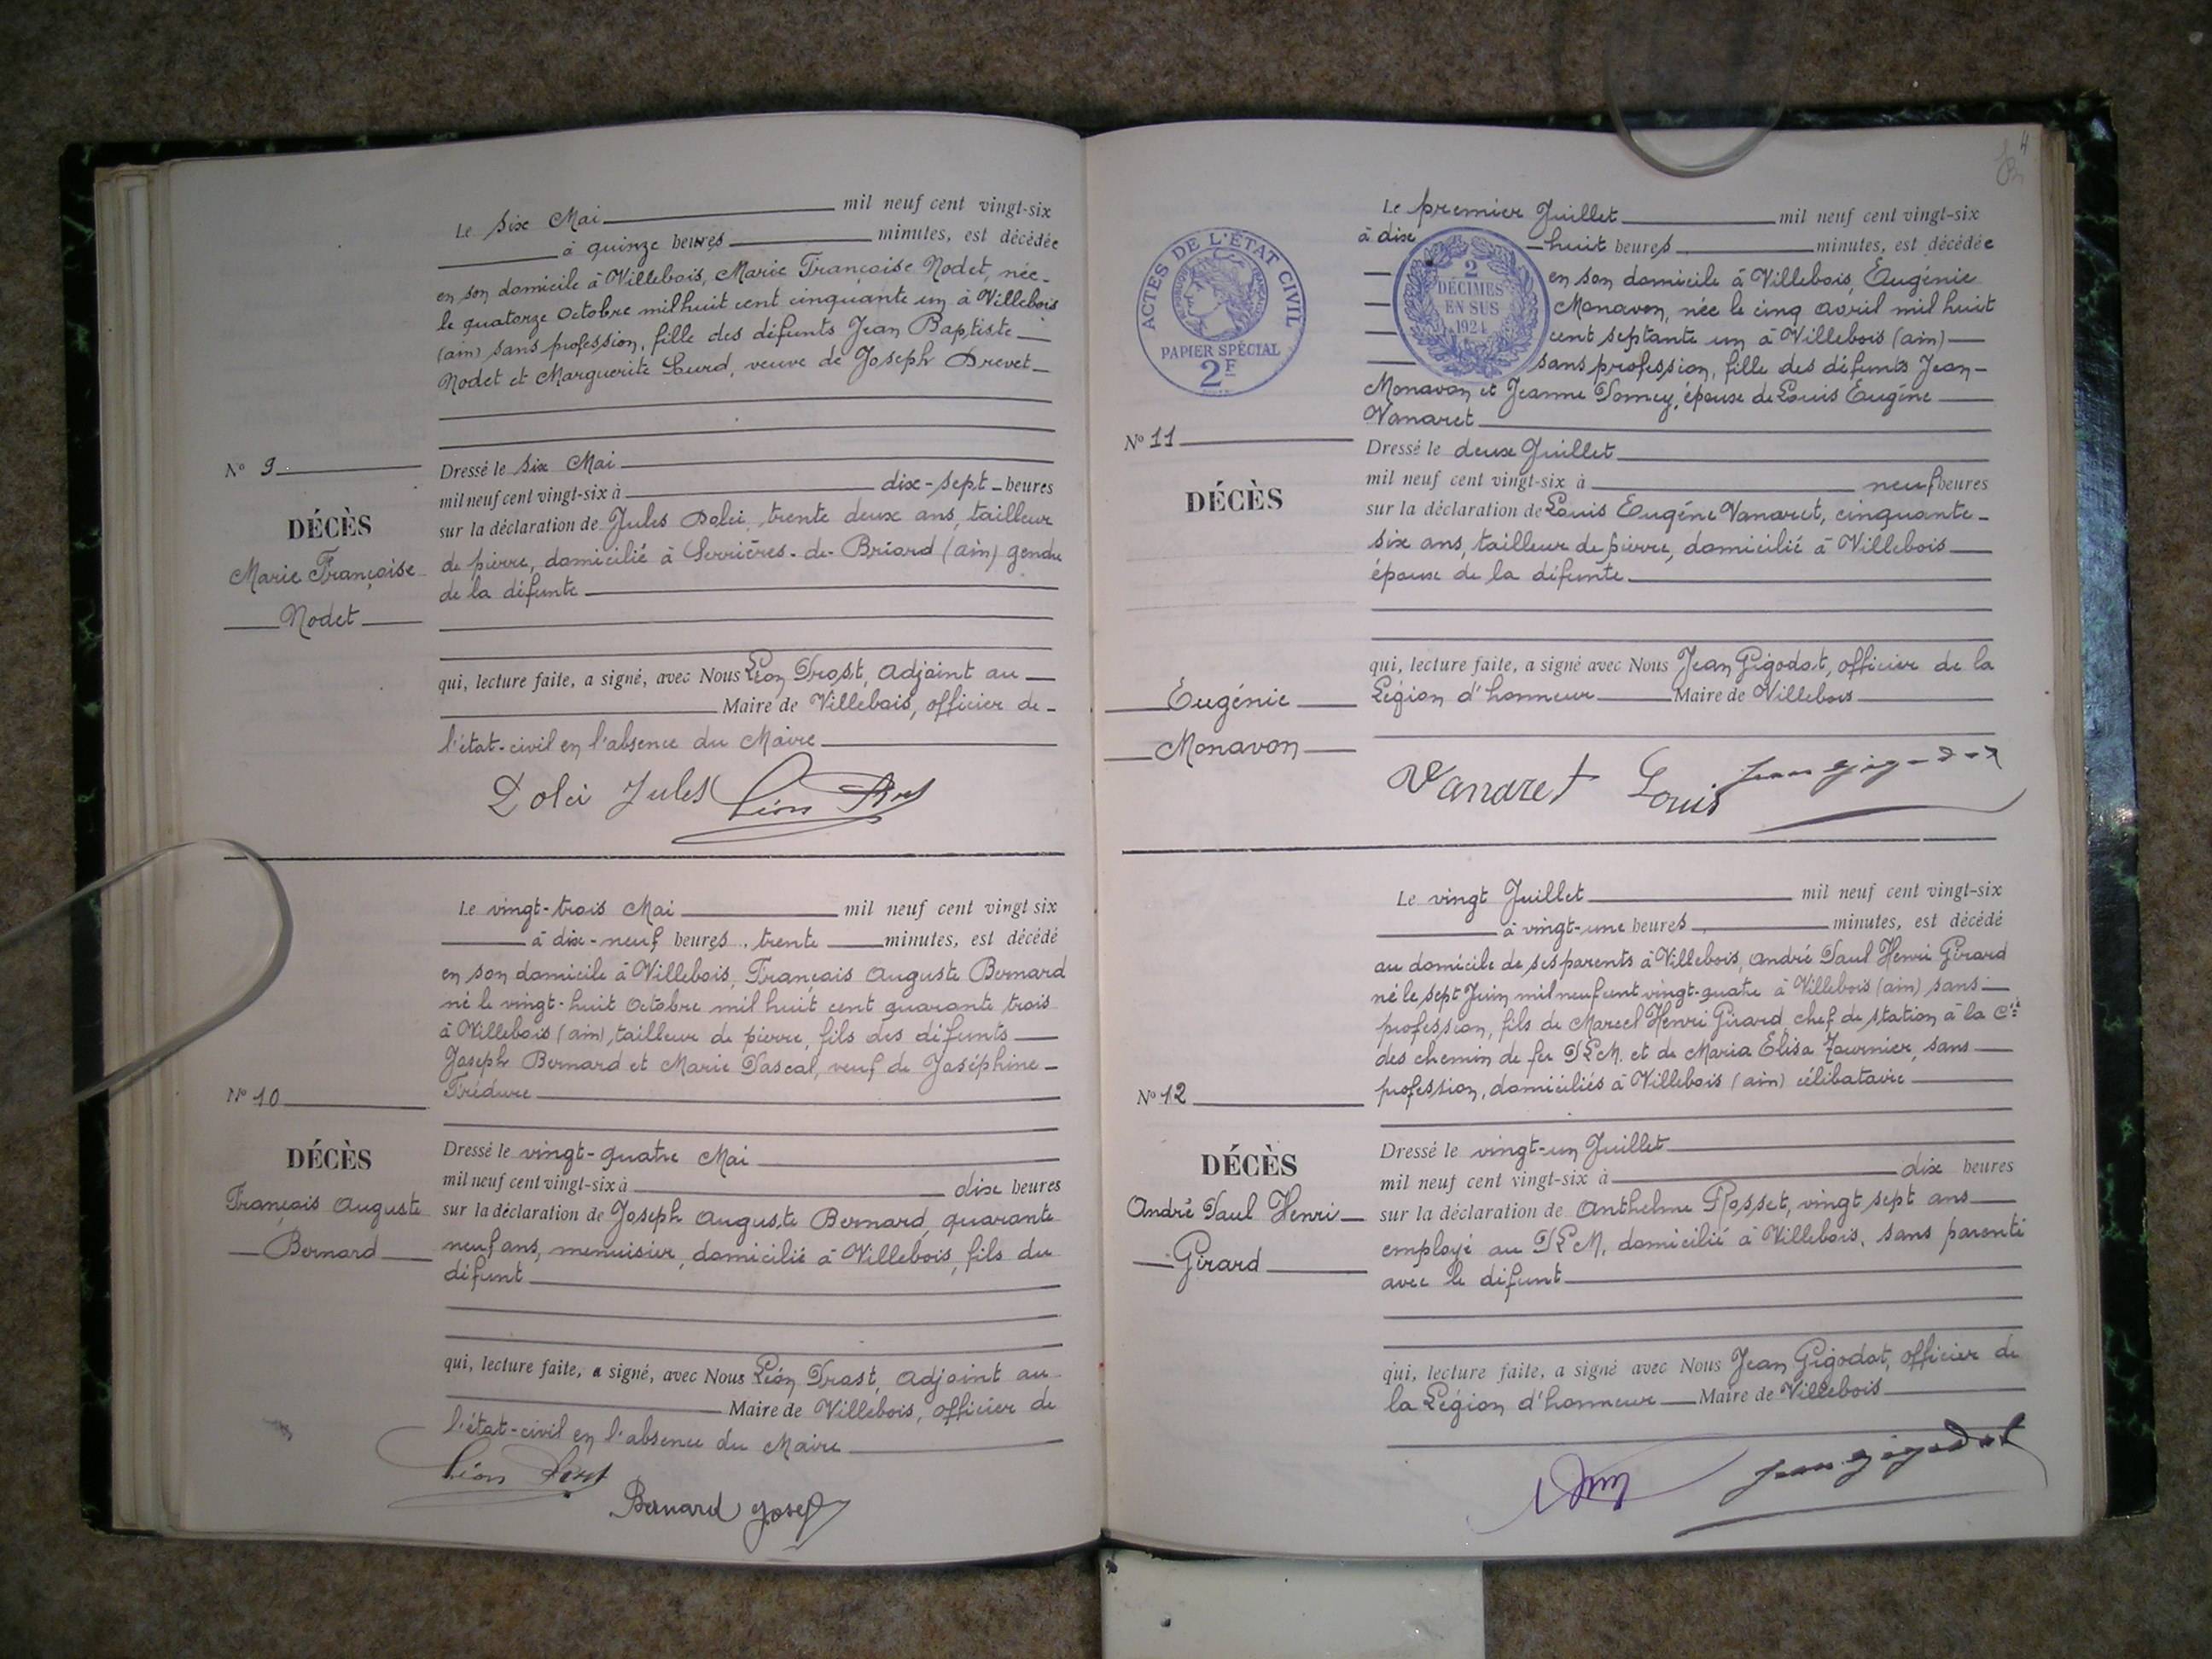 Le six Mai mil neuf cent vingt-six
à quinze heures minutes, est décédée
en son domicile à Villebois, Marie Françoise Nodet, née
le quatorze Octobre mil huit cent cinquante un à Villebois
(ain) sans profession, fille des défunts Jean Baptiste
Nodet et Marguerite Lurd, veuve de Joseph Drevet
Nº 9
DÉCÈS
Marie Françoise
Nodet
Dressé le six Mai
mil neuf cent vingt-six à dix-sept heures
sur la déclaration de Jules Dolci, trente deux ans, tailleur
de pierre, domicilié à Serrières-de-Briord (ain) gendre
de la défunte
qui, lecture faite, a signé, avec Nous Léon Prost, Adjoint au
Maire de Villebois, officier de
l'état-civil en l'absence du Maire
Dolci Jules Léon Prost
Le vingt-trois Mai mil neuf cent vingt six
à dix-neuf heures, trente minutes, est décédé
en son domicile à Villebois, François Auguste Bernard
né le vingt-huit Octobre mil huit cent quarante trois
à Villebois (ain), tailleur de pierre, fils des défunts
Joseph Bernard et Marie Pascal, veuf de Joséphine
Trédure
Nº 10
DÉCÈS
François Auguste
Bernard
Dressé le vingt-quatre Mai
mil neuf cent vingt-six à dix heures
sur la déclaration de Joseph Auguste Bernard, quarante
neuf ans, menuisier, domicilié à Villebois, fils du
défunt
qui, lecture faite, a signé, avec Nous Léon Prost, Adjoint au
Maire de Villebois, officier de
l'état-civil en l'absence du Maire
Léon Prost
Bernard Joseph
4
ACTES DE L'ÉTAT CIVIL
PAPIER SPÉCIAL
2F
2
DÉCIMES
EN SUS
1924
Le premier Juillet mil neuf cent vingt-six
à dix-huit heures minutes, est décédée
en son domicile à Villebois, Eugénie
Monavon, née le cinq avril mil huit
cent septante un à Villebois (ain)
sans profession, fille des défunts Jean
Monavon et Jeanne Pomey, épouse de Louis Eugène
Vanaret
Nº 11
DÉCÈS
Eugénie
Monavon
Dressé le deux Juillet
mil neuf cent vingt-six à neuf heures
sur la déclaration de Louis Eugène Vanaret, cinquante
six ans, tailleur de pierre, domicilié à Villebois
épouse de la défunte
qui, lecture faite, a signé avec Nous Jean Gigodot, officier de la
Légion d'honneur Maire de Villebois
Vanaret Louis Jean Gigodot
Le vingt Juillet mil neuf cent vingt-six
à vingt-une heures minutes, est décédé
au domicile de ses parents à Villebois, André Paul Henri Girard
né le sept Juin mil neuf cent vingt-quatre à Villebois (ain) sans
profession, fils de Marcel Henri Girard, chef de station à la Cie
des chemin de fer PLM. et de Maria Elisa Fournier, sans
profession, domiciliés à Villebois (ain) célibataire
Nº 12
DÉCÈS
André Paul Henri
Girard
Dressé le vingt-un Juillet
mil neuf cent vingt-six à dix heures
sur la déclaration de Anthelme Rosset, vingt sept ans
employé au PLM, domicilié à Villebois, sans parenté
avec le défunt
qui, lecture faite, a signé avec Nous Jean Gigodot, officier de
la Légion d'honneur Maire de Villebois
Jean Gigodot